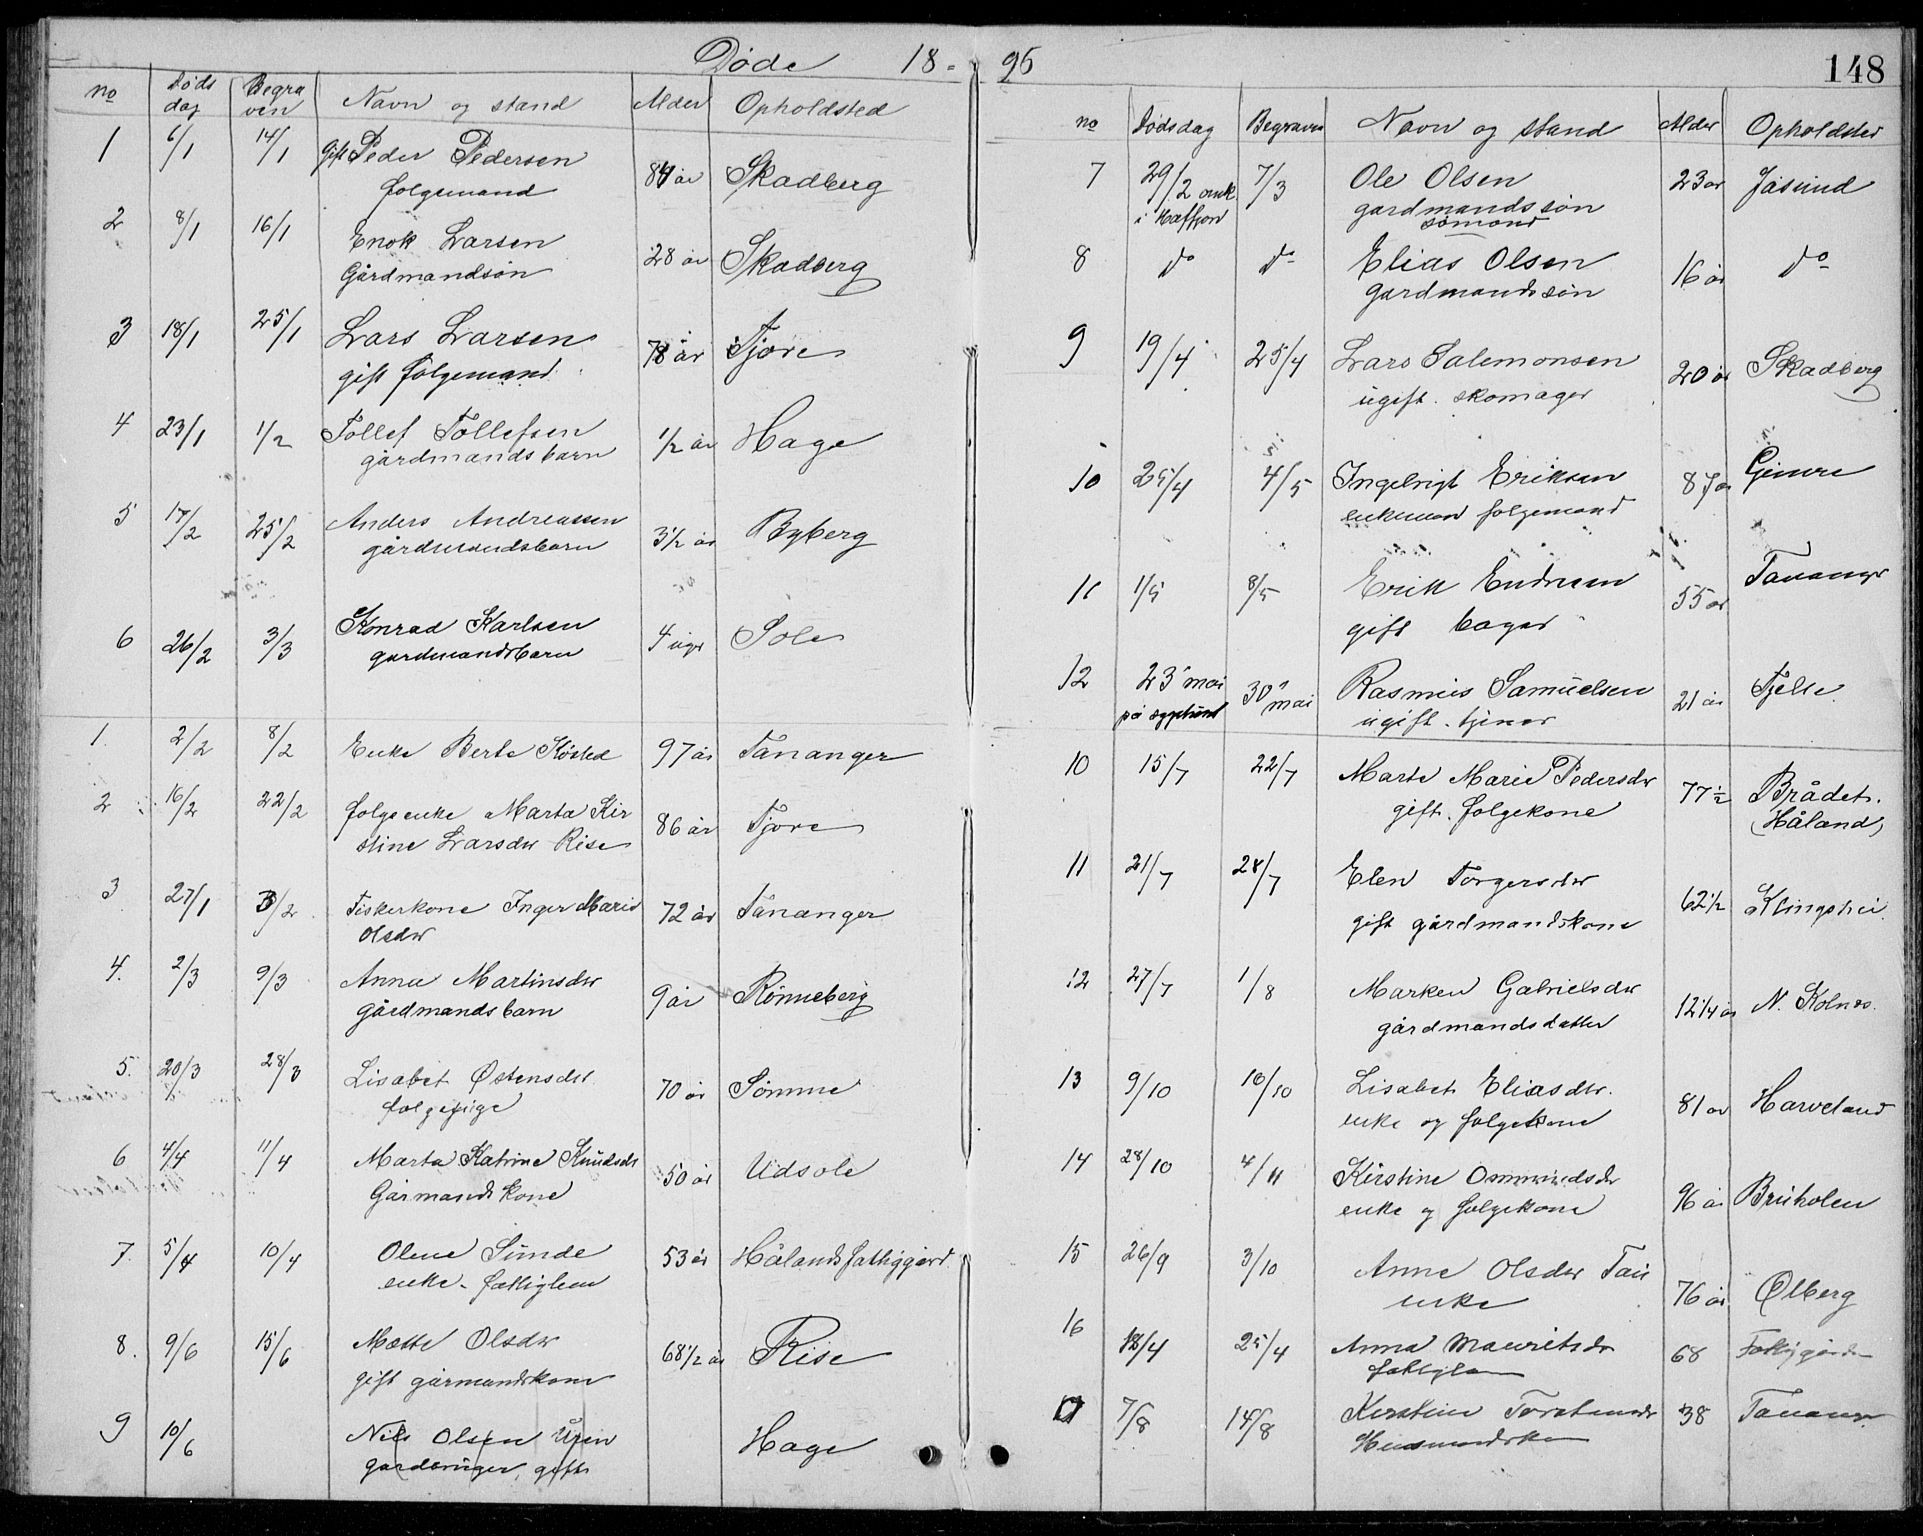 Døde 18-95
148
no Døds dag Begra ven Navn og stand Alder Opholdsted
1 6/1 14/1 gift Peder Pedersen 84 år Skadberg
folgemand
2 8/1 16/1 Enok Larsen 28 år Skadberg
Gårdmandsøn
3 18/1 25/1 Lars Larsen 78 år Tjore
gift folgemand
4 23/1 1/2 Tollef Tollefsen 1/2 år Hage
gårdmandsbarn
5 17/2 25/2 Anders Andreassen 3 1/2 år Byberg
gårdmandsbarn
6 26/2 3/3 Konrad Karlsen 4 uger Sole
gardmandsbarn
1. 2/2 8/2 Enke Berte Kösted 97 år Tananger
2 16/2 22/2 folgeenke Marta Kir 86 år Tjore
stine Larsdtr Rise
3 27/1 3/2 Fiskerkone Inger Marie 72 år Tananger
Olsdtr
4. 2/3 9/3 Anna Martinsdtr 9 år Rönneberg
gårdmandsbarn
5. 20/3 28/3 Lisabet Østensdtr 70 år Sömme
folgepige
6 4/4 11/4 Marta Katrine Knudsdtr 50 år Udsole
Gårmands kone
7. 5/4 10/4 Olene Sunde 53 år Hålands fattiggård
enke - fattiglem
8. 9/6 15/6 Mette Olsdtr 68 1/2 år Rise
gift gårmandskone
9 10/6 Nils Olsen Uren Hage
gardbruger, gift
no Dødsdag Begraven Navn og stand Alder Opholdsted
7 29/2 omk 7/3 Ole Olsen 23 år Jåsund
i Hafsfjord gardmandssøn
sømand
8 do do Elias Olsen 16 år do
gardmandssøn
9 19/4 25/4 Lars Salemonsen 20 år Skadberg
ugift. skomager
10 25/4 4/5 Ingebrigt Eriksen 87 år Gimre
enkemand folgemand
11 1/5 8/5 Erik Endresen 55 år Tananger
gift bager
12 23 mai 30 mai Rasmus Samuelsen 21 år Tjelle
på sygehuset ugift. tjener
10 15/7 22/7 Marte Marie Pedersdtr 77 1/2 Brådet.
gift. folgekone (Håland)
11 21/7 28/7 Elen Torgersdtr 62 1/2 Klingshei
gift gårdmandskone
12 27/7 1/8 Marken Gabrielsdtr 12 1/4 år N. Kolnes.
gårdmandsdatter
13 9/10 16/10 Lisabet Eliasdtr. 81 år Harveland
enke og folgekone
14 28/10 4/11 Kirstine Ommundsdtr 96 år Bruholen
enke og folgekone
15 26/9 3/10 Anne Olsdtr Tau 76 år Ølberg
enke
16 18/4 25/4 Anna Mauritsdtr 68 Fattiggården
fattiglem
17 7/8 14/8 Kirstine Torstensdtr 38 Tananger
Husmandskone